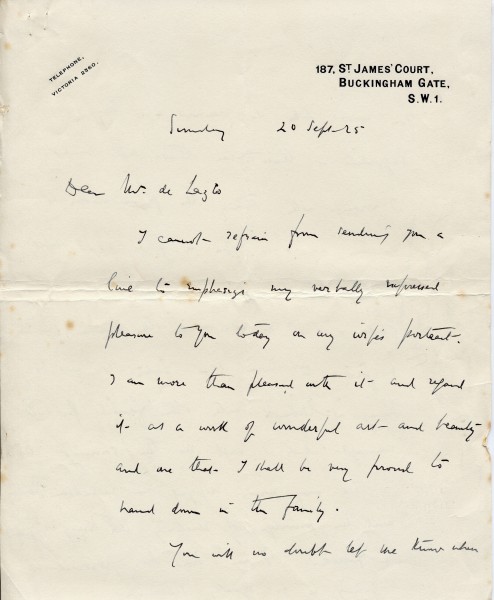 TELEPHONE,
VICTORIA 2360.
187, ST JAMES' COURT,
BUCKINGHAM GATE,
S.W.1.
Sunday 20 Sept-25
Dear Mr. de Laszlo
I cannot refrain from sending you a
line to emphasize my verbally expressed
pleasure to you today on my wife's portrait.
I am more than pleased with it and regard
it as a work of wonderful art and beauty
and one that I shall be very proud to
hand down in the family.
You will no doubt let me know when